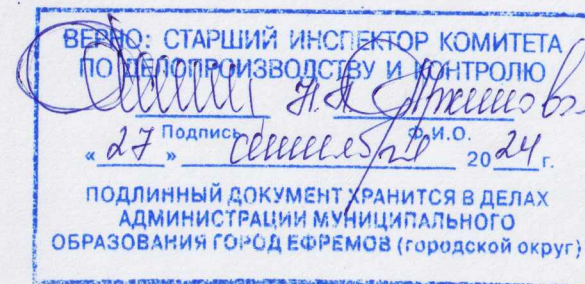 ВЕРНО: СТАРШИЙ ИНСПЕКТОР КОМИТЕТА
ПО ДЕЛОПРОИЗВОДСТВУ И КОНТРОЛЮ
Подпись Ф.И.О.
« 27 » сентября 2024 г.
ПОДЛИННЫЙ ДОКУМЕНТ ХРАНИТСЯ В ДЕЛАХ
АДМИНИСТРАЦИИ МУНИЦИПАЛЬНОГО
ОБРАЗОВАНИЯ ГОРОД ЕФРЕМОВ (городской округ)